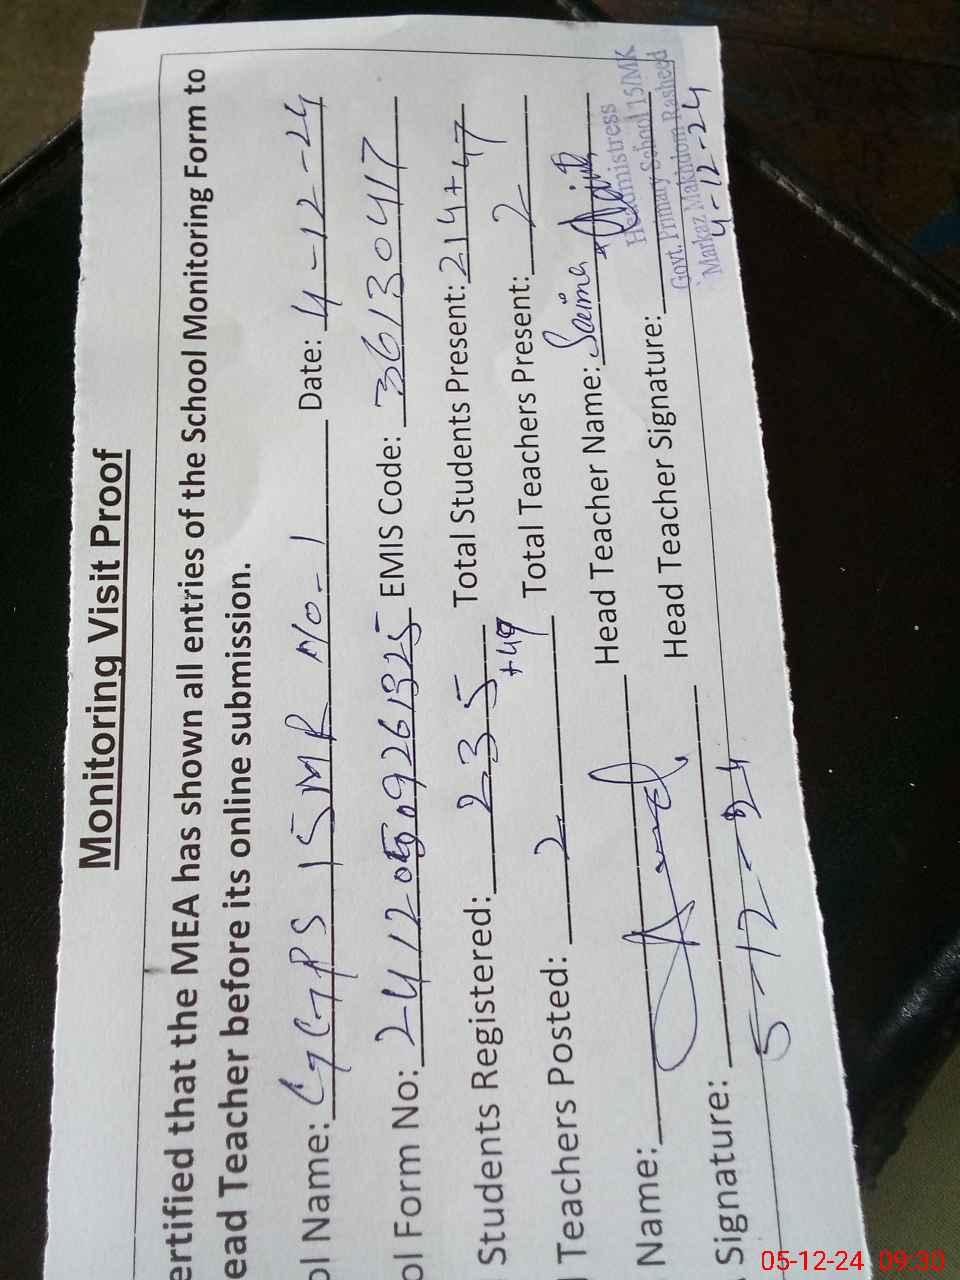 Monitoring Visit Proof
ertified that the MEA has shown all entries of the School Monitoring Form to
ead Teacher before its online submission.
ol Name: GGPS 15 MR No-1 Date: 4-12-24
ol Form No: EMIS Code: 36130417
Students Registered: 235 +49 Total Students Present: 214+47
Teachers Posted: 2 Total Teachers Present: 2
Name: Head Teacher Name: Saima
Signature: Head Teacher Signature:
Headmistress
Govt. Primary School 15/MK
Markaz Makhdom Rasheed
5-12-24 4-12-24
05-12-24 09:30